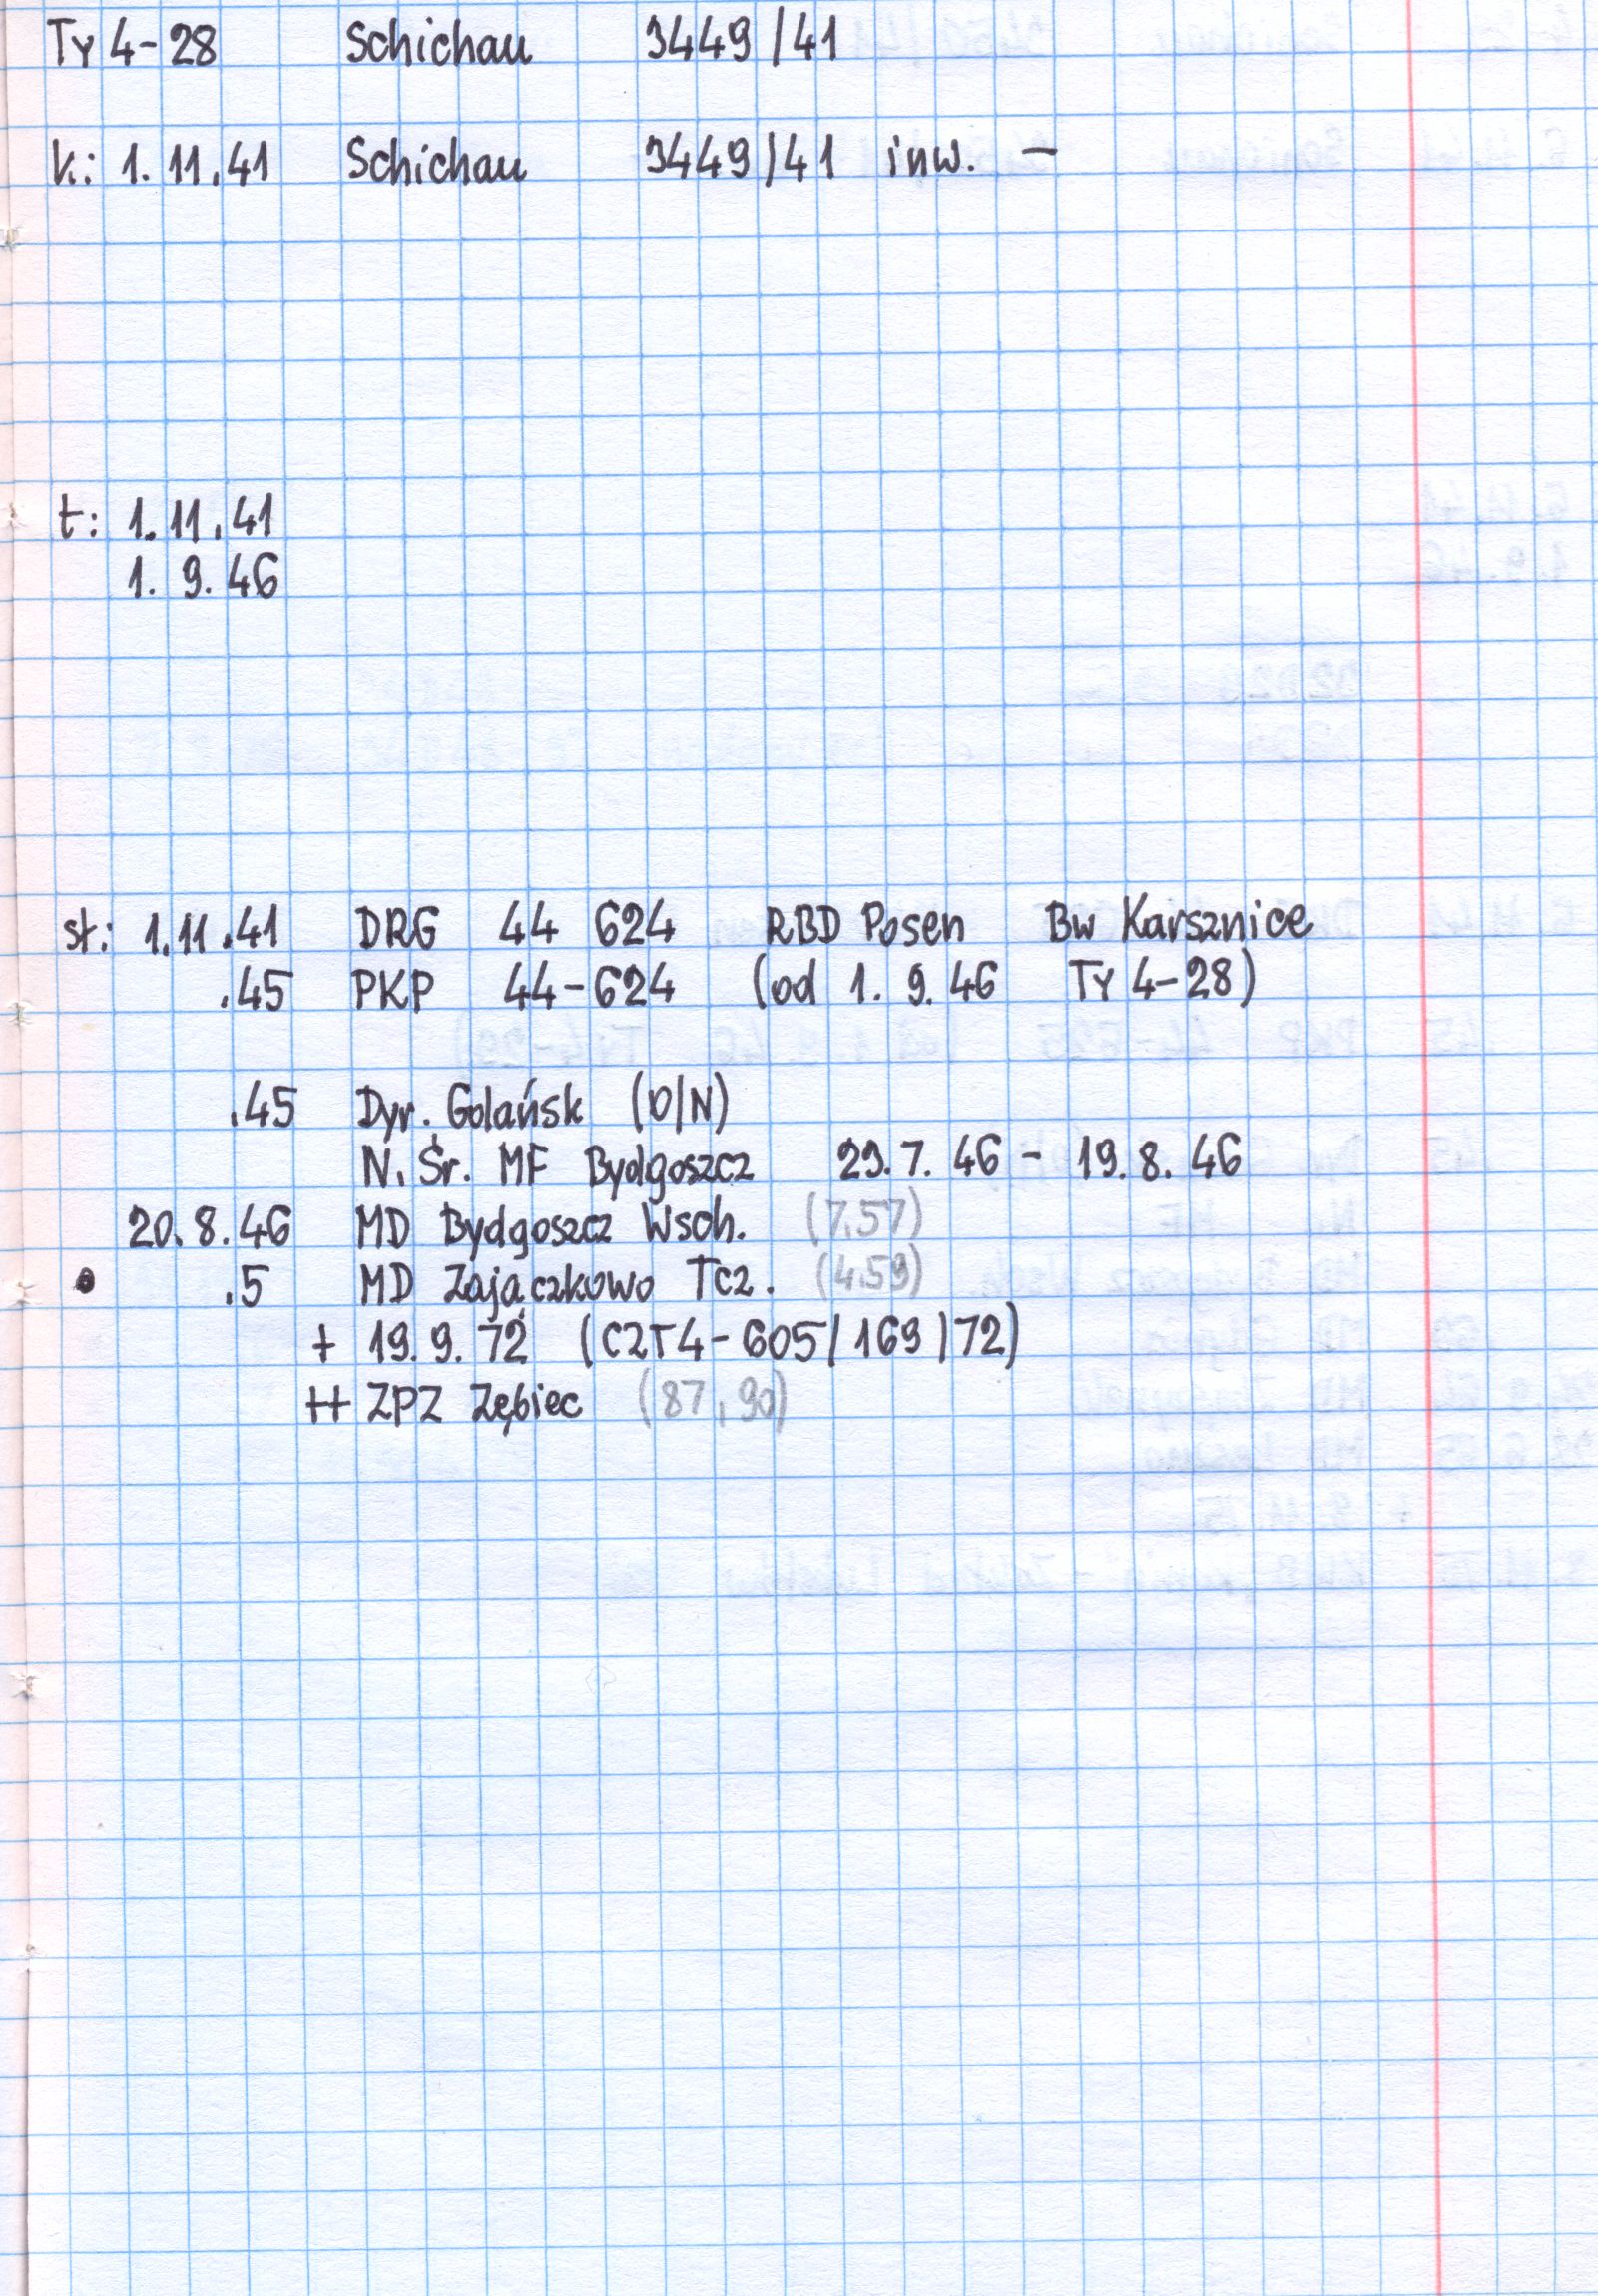 Ty 4-28 Schichau 3449/41
k: 1.11.41 Schichau 3449/41 inw. -
t: 1.11.41
1. 9. 46
st: 1.11.41 DRG 44 624 RBD Posen Bw Karsznice
.45 PKP 44-624 (od 1. 9. 46 Ty 4-28)
.45 Dyr. Gdańsk (D/N)
N. Śr. MF Bydgoszcz 29.7. 46 - 19.8. 46
20.8.46 MD Bydgoszcz Wsch. (7.57)
.5 MD Zajączkowo Tcz. (4.59)
+ 19.9.72 (CZT4-605/169/72)
++ ZPZ Zębiec (87, 90)